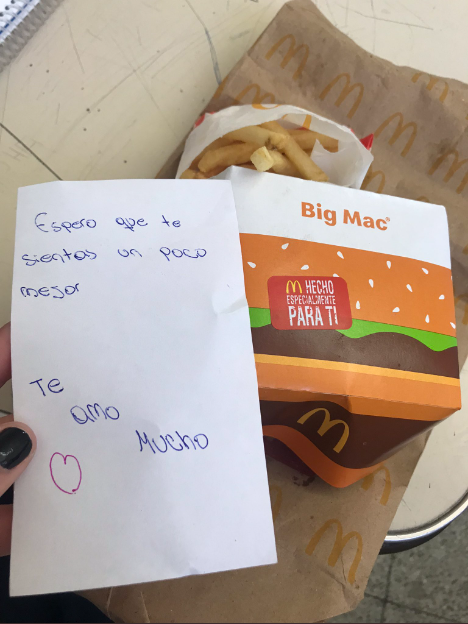 Espero que te
sientas un poco
mejor
Te
amo
Mucho
Big Mac®
M HECHO
ESPECIALMENTE
PARA TI